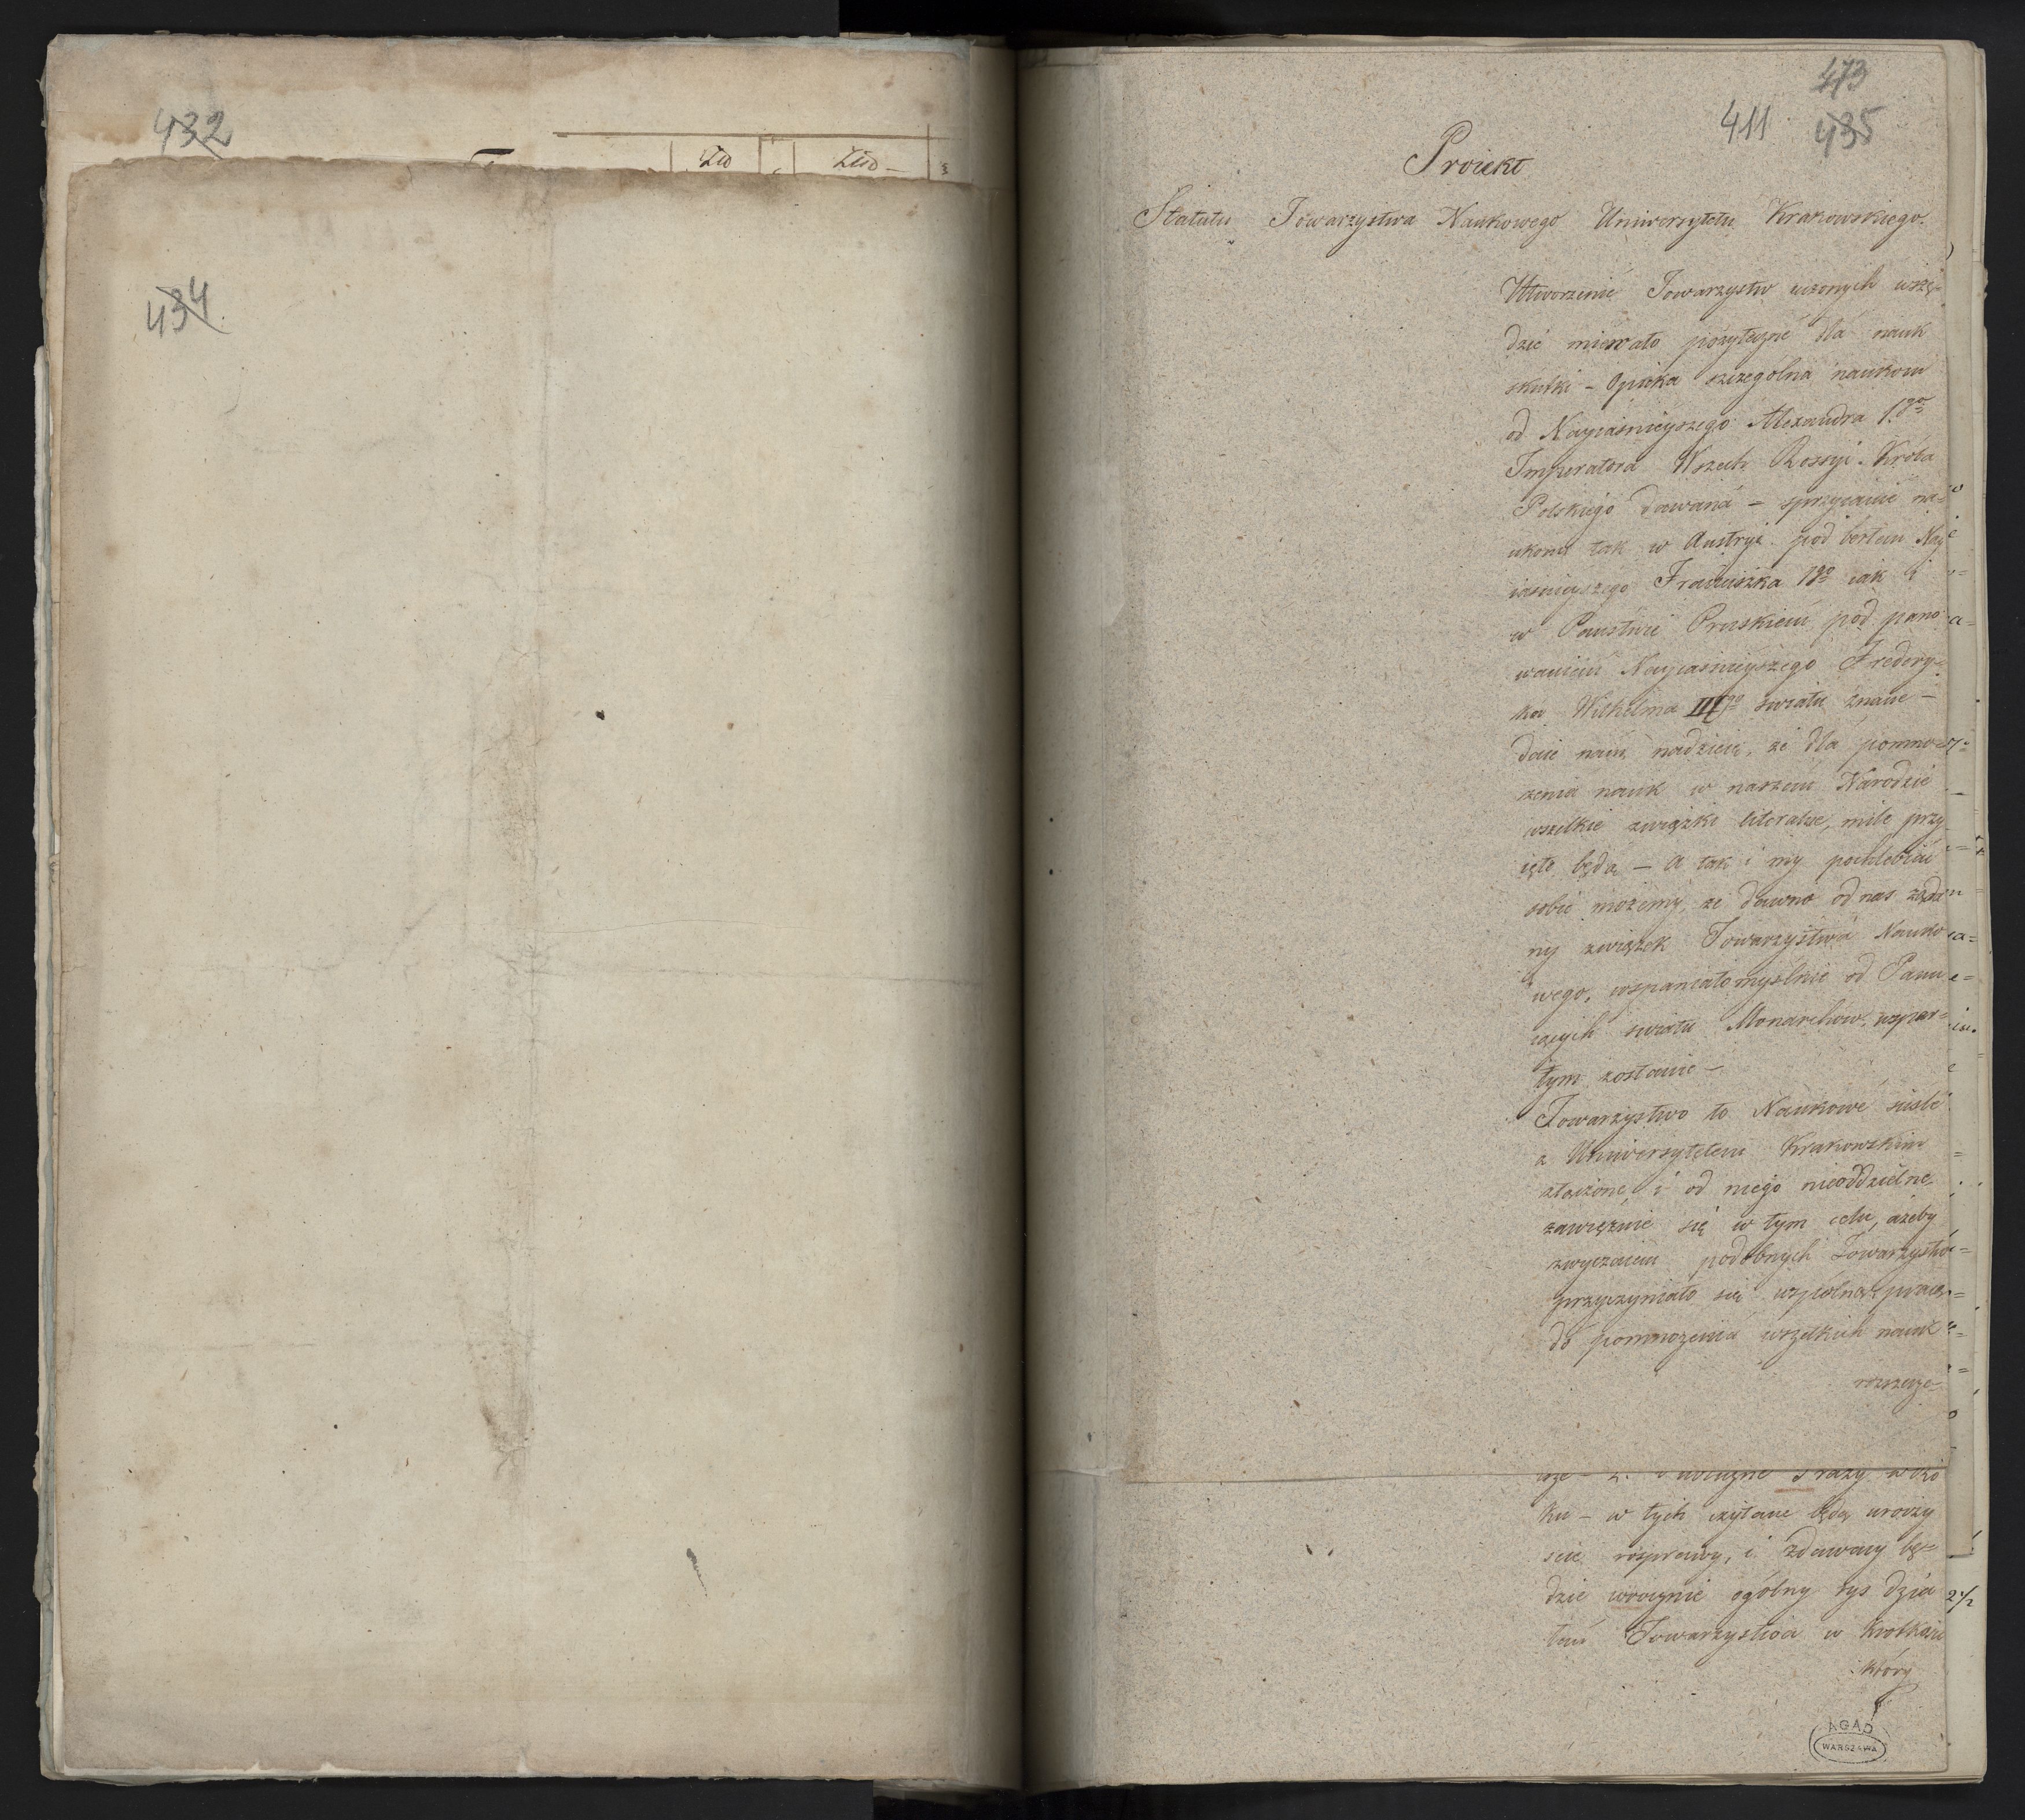 432
434
473
411 435
Proiekt
Statutu Towarzystwa Naukowego Uniwersytetu Krakowskiego.
Utworzenie Towarzystw uczonych wszę=
dzie miewało pożyteczne dla nauk
skutki – Opieka szczególna naukom
od Nayiasnieyszego Alexandra 1go
Imperatora Wszech Rossyi. Króla
Polskiego dawana – sprzyianie na=
ukom tak w Austryi pod berłem Nay
iasnieyszego Franciszka 1go iak i
w Państwie Pruskiem pod pano
waniem Nayiasnieyszego Frederyː
ka Wilhelma IIIgo swiatu znane –
daie nam nadzieię, że dla pomno
żenia nauk w naszem Narodzie
wszelkie związki literalne, mile przy
ięte będą – A tak i my pochlebiać
sobie możemy, że dawno od nas żąda
ny związek Towarzystwa Nauko
wego, wspaniałomyślnie od Panu
iących swiatu Monarchów, wspar=
tym zostanie –
Towarzystwo to Naukowe sisle
z Uniwersytetem Krakowskim
złączone, i od niego nieoddzielne,
zawięzuie się w tym celu, ażeby
zwyczaiem podobnych Towarzystw
przyczyniało się wspólną pracą
do pomnożenia wszelkich nauk
rozszerze-
razy w Ro
ku – w tych czytane będą uroczy
ście rozprawy, i zdawany bę=
dzie ogólny rys dzia
łań Towarzystwa w krotkości
który
2/2
AGAD
WARSZAWA